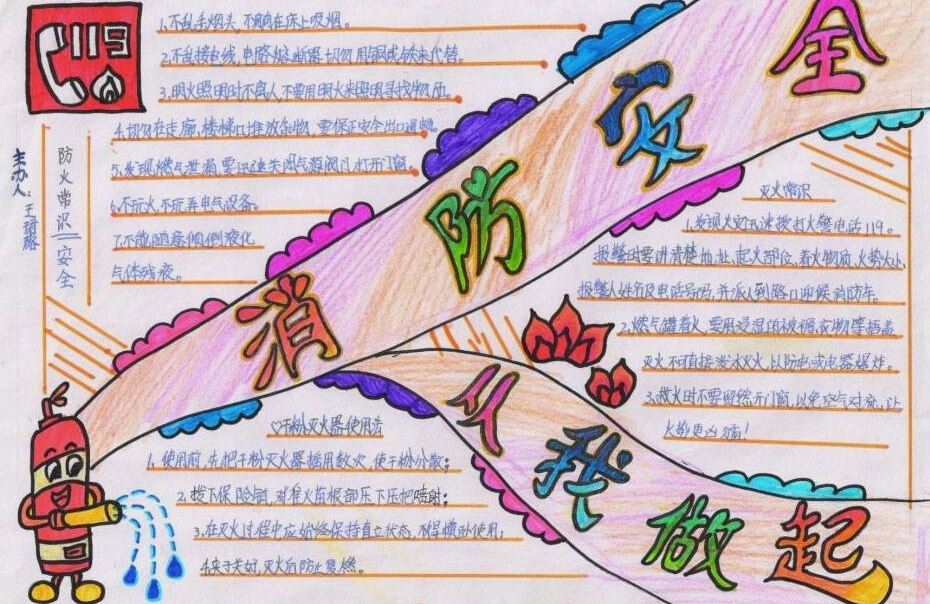 119
消防安全
从我做起
主办人：王
防火常识——安全
1、不乱丢烟头,不躺在床上吸烟。
2、不乱接电线,电路熔断器切勿用铜或铁来代替。
3、明火照明时不离人,不要用明火来照明寻找物质。
4、切勿在走廊,楼梯口堆放杂物,要保证安全出口通畅。
5、发现燃气泄漏,要迅速关闭气源阀门,打开门窗。
6、不玩火,不玩弄电气设备。
7、不能随意倾倒液化
气体残液。
灭火常识
1、发现火灾迅速拨打火警电话119。
报警时要讲清楚地址,起火部位,着火物质,火势大小,
报警人姓名及电话号码,并派人到路口迎候消防车。
2、燃气罐着火,要用浸湿的被褥,衣物等捂盖
灭火不可直接泼水灭火,以防电或电器爆炸。
3、救火时不要贸然开门窗,以免空气对流,让
火势更凶猛!
♡干粉灭火器使用法
1、使用前,先把干粉灭火器摇用数次,使干粉分散;
2、拨下保险销,对准火苗根部压下压把喷射;
3、在灭火过程中应始终保持直立状态,不得横卧使用;
4、灭火后防止复燃。